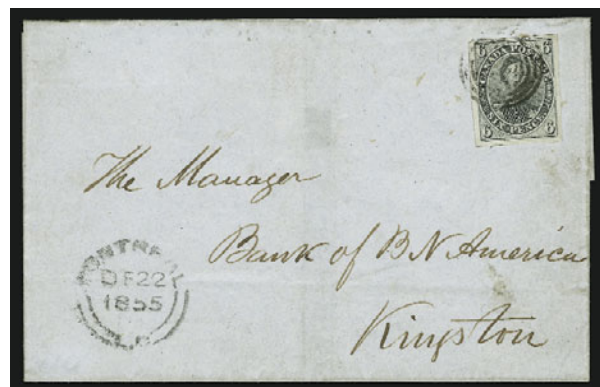 6 CANADA POSTAGE 6
6 SIX PENCE 6
The Manager
Bank of B N America
Kingston
MONTREAL
DE 22
1855
L.C